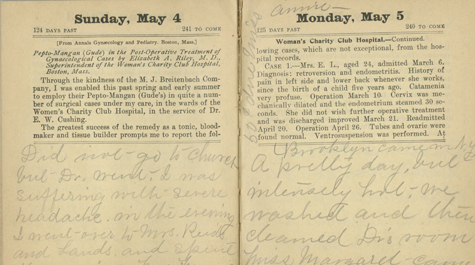 Sunday, May 4
124 DAYS PAST 241 TO COME
[From Annals Gynæcology and Pediatry, Boston, Mass.]
Pepto-Mangan (Gude's) in the Post-Operative Treatment of
Gynæcological Cases by Elizabeth A. Riley, M. D.,
Superintendent of the Woman's Charity Club Hospital,
Boston, Mass.
Through the kindness of the M. J. Breitenbach Com-
pany, I was enabled this past spring and early summer
to employ their Pepto-Mangan (Gude's) in quite a num-
ber of surgical cases under my care, in the wards of the
Women's Charity Club Hospital, in the service of Dr.
E. W. Cushing.
The greatest success of the remedy as a tonic, blood-
maker and tissue builder prompts me to report the fol-
Did not go to church
but Dr. went I was
suffering with severe
headache. in the evening
I went over to Mrs.
and spent
Monday, May 5
125 DAYS PAST 240 TO COME
Woman's Charity Club Hospital.—Continued.
lowing cases, which are not exceptional, from the hos-
pital records.
CASE 1.—Mrs. E. L., aged 24, admitted March 6.
Diagnosis: retroversion and endometritis. History of
pain in left side and lower back whenever she works,
since the birth of a child five years ago. Catamenia
very profuse. Operation March 10. Cervix was me-
chanically dilated and the endometrium steamed 30 sec-
onds. She did not wish further operative treatment
and was discharged March 21. Readmitted
April 20. Operation April 26. Tubes and ovaries were
found normal. Ventrosuspension was performed. At
Brooklyn came
A pretty day, but
intensely hot - we
washed and then
cleaned Dr's room
Miss Margaret came